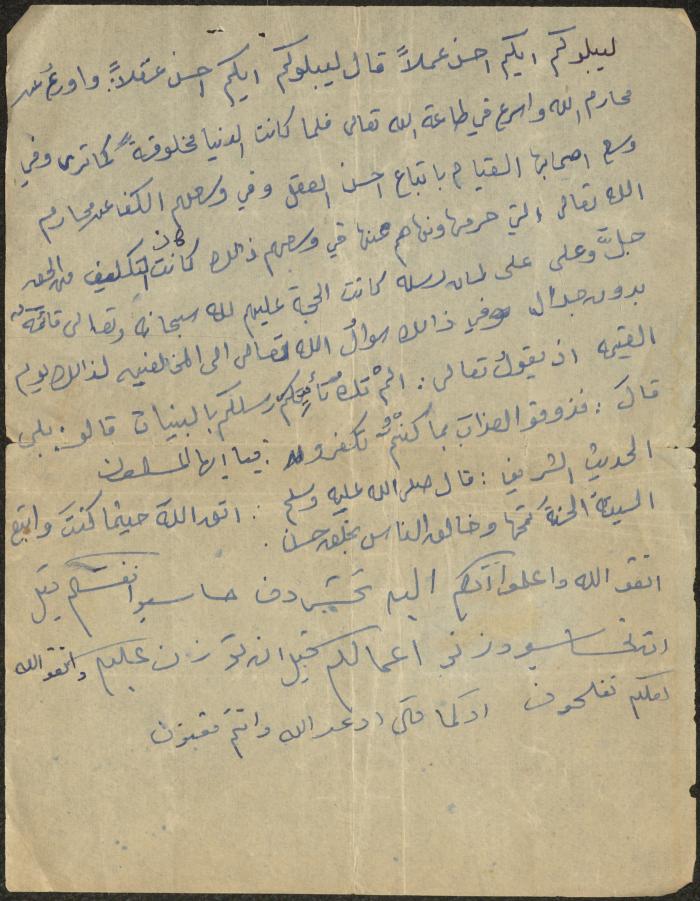 ليبلوكم ايكم احسن عملاً قال ليبلوكم ايكم احسن عقلاً واورع عن
محارم الله واسرع في طاعة الله تعالى فلما كانت الدنيا مخلوقة كما ترى وفي
وسع اصحابها القيام باتباع احسن العقل وفي وسعهم الكف عن محارم
الله تعالى التي حرمها ونهاهم عنها في وسعهم ذلك كان التكليف من الحق
جلَّ وعلى على لسان رسله كانت الحجة عليهم لله سبحانه وتعالى قائمة
بدون جدال وفي ذالك سوال الله تعالى الى المخالفين لذالك يوم
القيمة اذ يقول تعالى : المْ تكُ تأتيكم رسلكم بالبينات قالو بلى
قال : فذوقو العذاب بما كنتمْ تكفرون : فيا ايها المسلمون
الحديث الشريف : قال صلى الله عليه وسلم : اتق اللهَ حيثما كنتَ واتبع
السيئة الحسنةَ تمحها وخالق الناس بخلق حسن
اتقو الله واعلموا أنكم اليه تحشرون حاسبو انفسكم قبل
ان تحاسبو وزنو اعمالكم قبل ان توزن عليكم واتقو الله
لعلكم تفلحون او كما قال ادعو الله وانتم موقنون